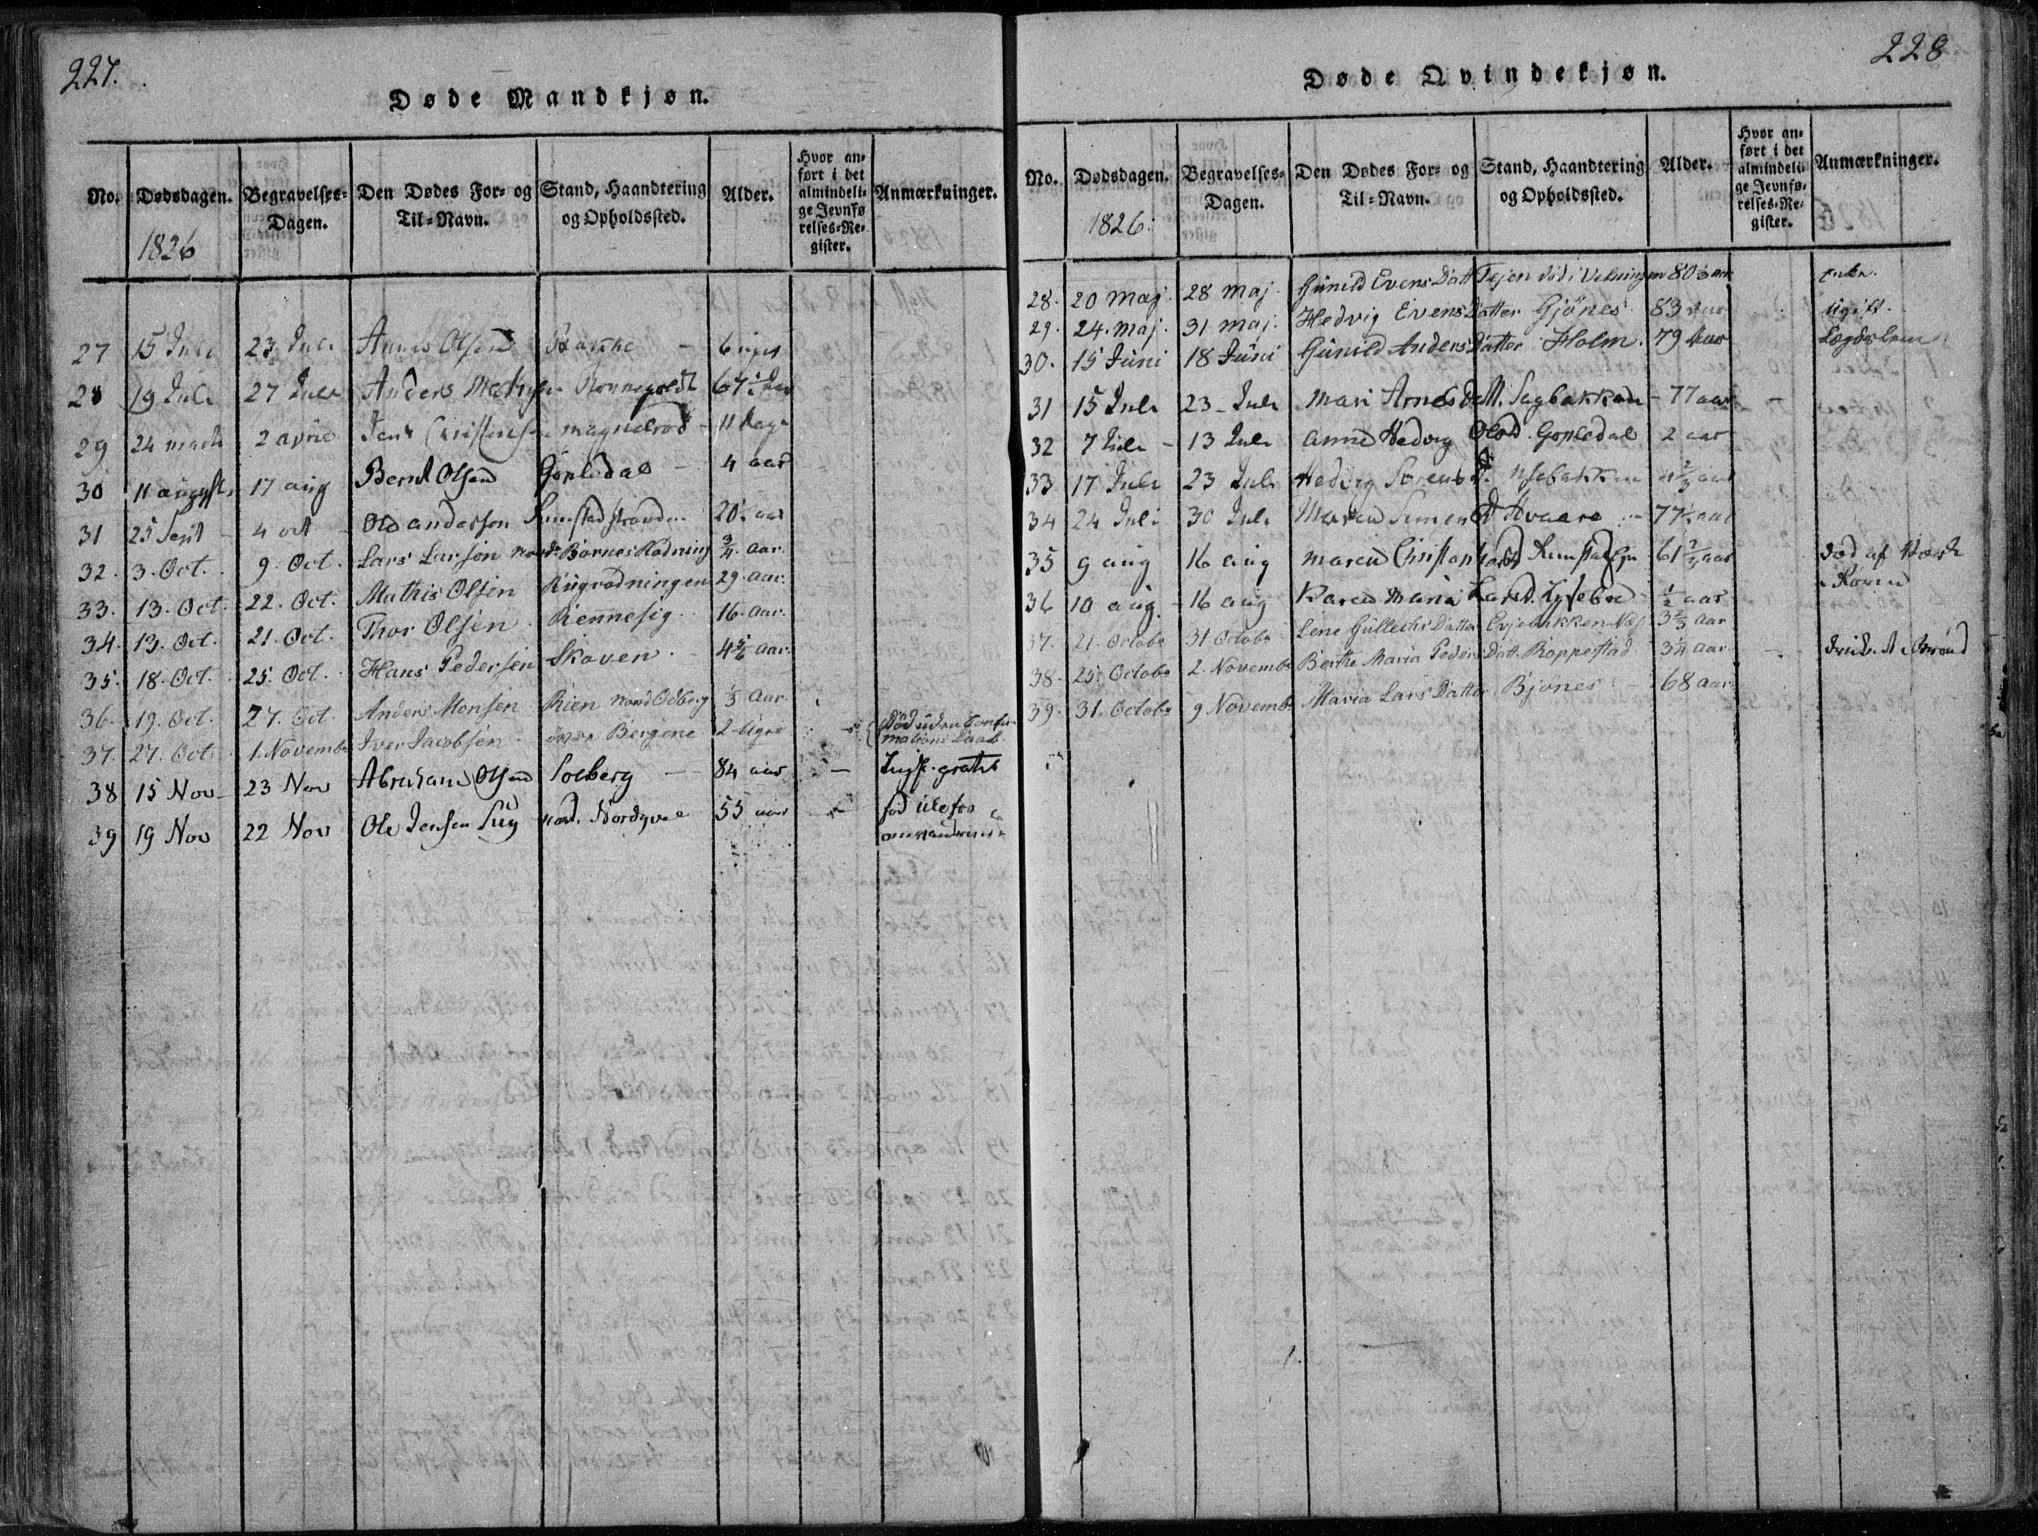 227.
Døde Mandkjøn.
No. Dødsdagen. Begravelses-Dagen. Den Dødes For- og Til-Navn. Stand, Haandtering og Opholdssted. Alder. Hvor anført i det almindelige Jevnførelses-Register. Anmærkninger.
1826
27 15 Juli 23 Juli Olsen 6 uger
28 19 Juli 27 Juli Anders 67½ Aar
29 24 martz 2 april Jens Christensen Magnelrød 11 Dage
30 11 august 17 aug Bernt Olsen Gopledal 4 aar
31 25 Sept 4 oct Ole Anderssen 20½ aar
32. 3. Oct. 9. Oct. Lars Larsen Nord: Barnes Rødning ¾ Aar.
33. 13. Oct. 22. Oct. Mathis Olsen Rugrødningen 29. Aar.
34. 13. Oct. 21. Oct. Thor Olsen Rennesig. 16. Aar.
35. 18. Oct. 25. Oct. Hans Pedersen Skoven. 4⅚ Aar.
36. 19. Oct. 27. Oct. Anders Monsen Rien Nord Odberg ⅓ Aar.
37. 27. Oct. 1. Novembr Iver Jacobsen Bergene 2 Uger Død uden Confirmations Daab
38 15 Nov 23 Nov Abraham Olsen Solberg 84 aar gratis
39 19 Nov 22 Nov Ole Jensen nord. 55 aar
228
Døde Qvindekjøn.
No. Dødsdagen. Begravelses-Dagen. Den Dødes For- og Til-Navn. Stand, Haandtering og Opholdssted. Alder. Hvor anført i det almindelige Jevnførelses-Register. Anmærkninger.
1826.
28. 20 Maj. 28 Maj. Gunild Evens Datt Tejen død i 80 aar Enke.
29. 24. Maj. 31 Maj. Hedvig Evens Datter Gjønes 83 Aar Ugift.
30. 15 Juni 18 Juni Gunild Anders Datter Holm. 79 Aar Lægdslem
31 15 Juli 23 Juli Mari Arnes Datt. Sagbakken 77 aar
32 7 Juli 13 Juli Anne Hedvig Olsd. Gopledal 2 aar
33 17 Juli 23 Juli Hedvig Sørens D.
34 24 Juli 30 Juli Maren Simens D Hvaara 77½ aar
35 9 aug 16 aug Maren Christophersd 61 aar død af
36 10 aug 16 aug Karen Maria Larsd. ½ aar
37. 21. Octobr 31 Octobr Lene Gullechs Datter Evjebakken 3⅔ Aar
38. 25. Octobr 2. Novembr Berthe Maria Peders Datt. Roppestad 34 Aar i Brønd
39. 31. Octobr 9 Novembr Maria Lars Datter Bjønes 68 Aar